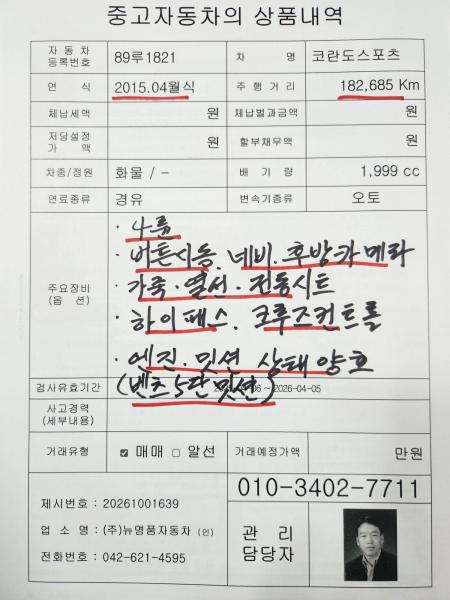 중고자동차의 상품내역
자 동 차 등록번호 89루1821 차 명 코란도스포츠
연 식 2015.04월식 주 행 거 리 182,685 Km
체납세액 원 체납벌과금액 원
저당설정 가 액 원 할부채무액 원
차종/정원 화물 / - 배 기 량 1,999 cc
연료종류 경유 변속기종류 오토
주요장비 (옵 션)
· 4륜
· 버튼시동. 네비. 후방카메라
· 가죽 · 열선 · 전동시트
· 하이패스. 크루즈컨트롤
· 엔진. 밋션 상태양호
(벤츠5단 밋션)
검사유효기간 ~ 2026-04-05
사고경력 (세부내용)
거래유형 ☑ 매매 □ 알선 거래예정가액 만원
010-3402-7711
제시번호 : 20261001639
업 소 명 : (주)뉴명품자동차 (인)
전화번호 : 042-621-4595
관 리
담당자